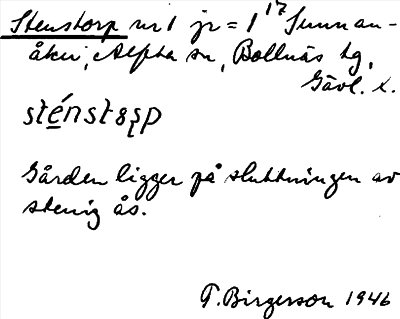 Stenstorp nr 1 jr = 1 17 Sunnan-
åker, Alfta sn, Bollnäs tg,
Gävl. l.
sténstǫrp
Gården ligger på sluttningen av
stenig ås.
T. Birgerson 1946